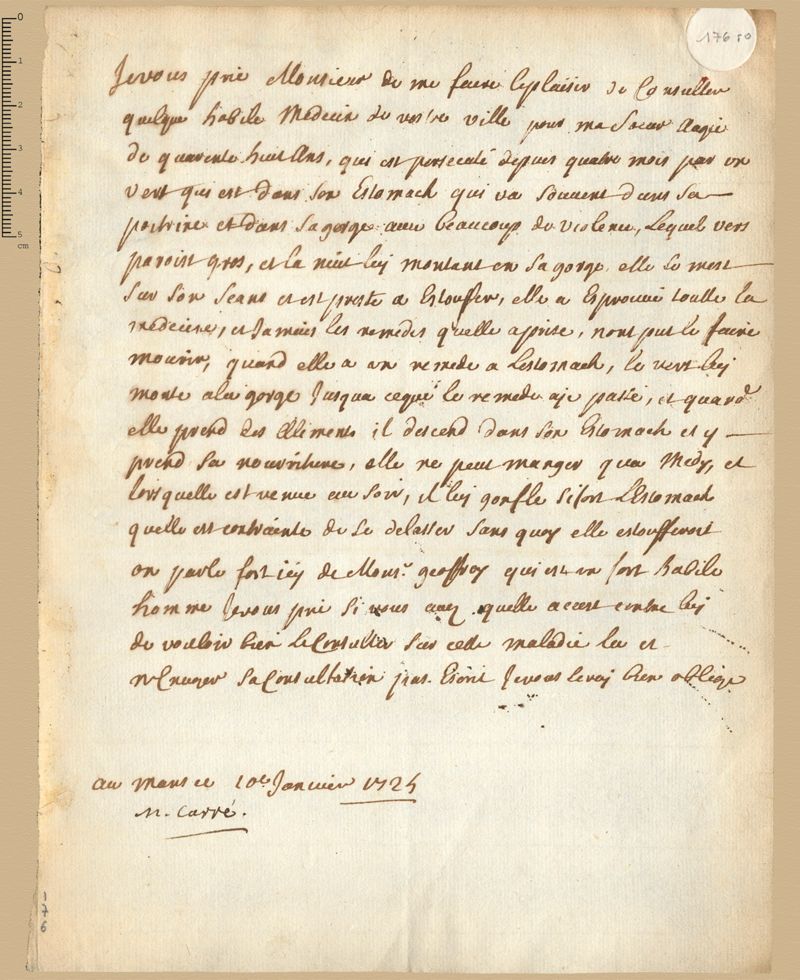 176 50
Je vous prie Monsieur de me faire le plaisir de Consulter
quelque habile Medecin de vostre ville pour ma Soeur Aagée
de quarente huit Ans, qui est persecuté depuis quatre mois par un
vert qui est dans son Estomach qui va souvent dans sa
poitrine et dans sa gorge avec beaucoup de violence, Lequel vers
paroist gros, et la nuit luy montant en sa gorge, elle se mest
sur son seans et est preste a Estouffer, elle a Esprouvé toutte la
medecine, et Jamais les remedes quelle a prise, nont put le faire
mourir, quand elle a un remede a Lestomach, le vert luy
monte a la gorge Jusqua ceque le remede aje passé, et quand
elle prend des Alliments il descend dans son Estomach et y
prend sa nourriture, elle ne peut manger qua Midy, et
lors quelle est venue au soir, il luy gonfle si fort LEstomach
quelle est contrainte de se delasser sans quoy elle estoufferoit
on parle fort icy de Monsr. geoffroy qui est un fort habile
homme Je vous prie si vous avez quelle accest emtre luy
de vouloir bien Le Consulter sur cette maladie la et
mEnvoyer sa Consultation par Escrit Je vous seray bien obligé
au mans ce 10e Janvier 1725
M. Carré.
0
1
2
3
4
5
cm
176